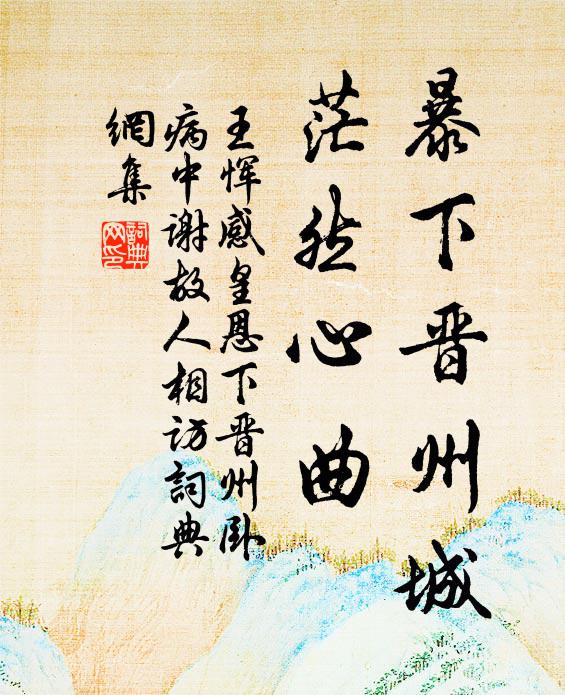 暴下晋州城
茫然心曲
王恽感皇恩下晋州卧
病中谢故人相访詞典
網集
詞典
网印